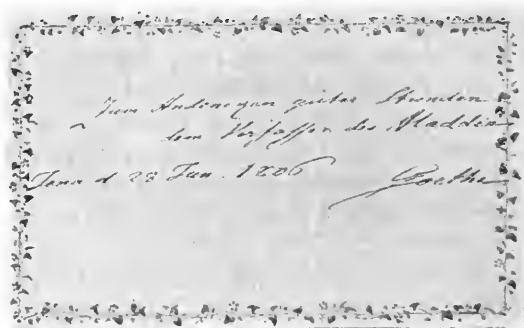 Zum Andencken guter Stunden
dem Verfasser des Aladdin
Jena d 29 Jun. 1806 Goethe